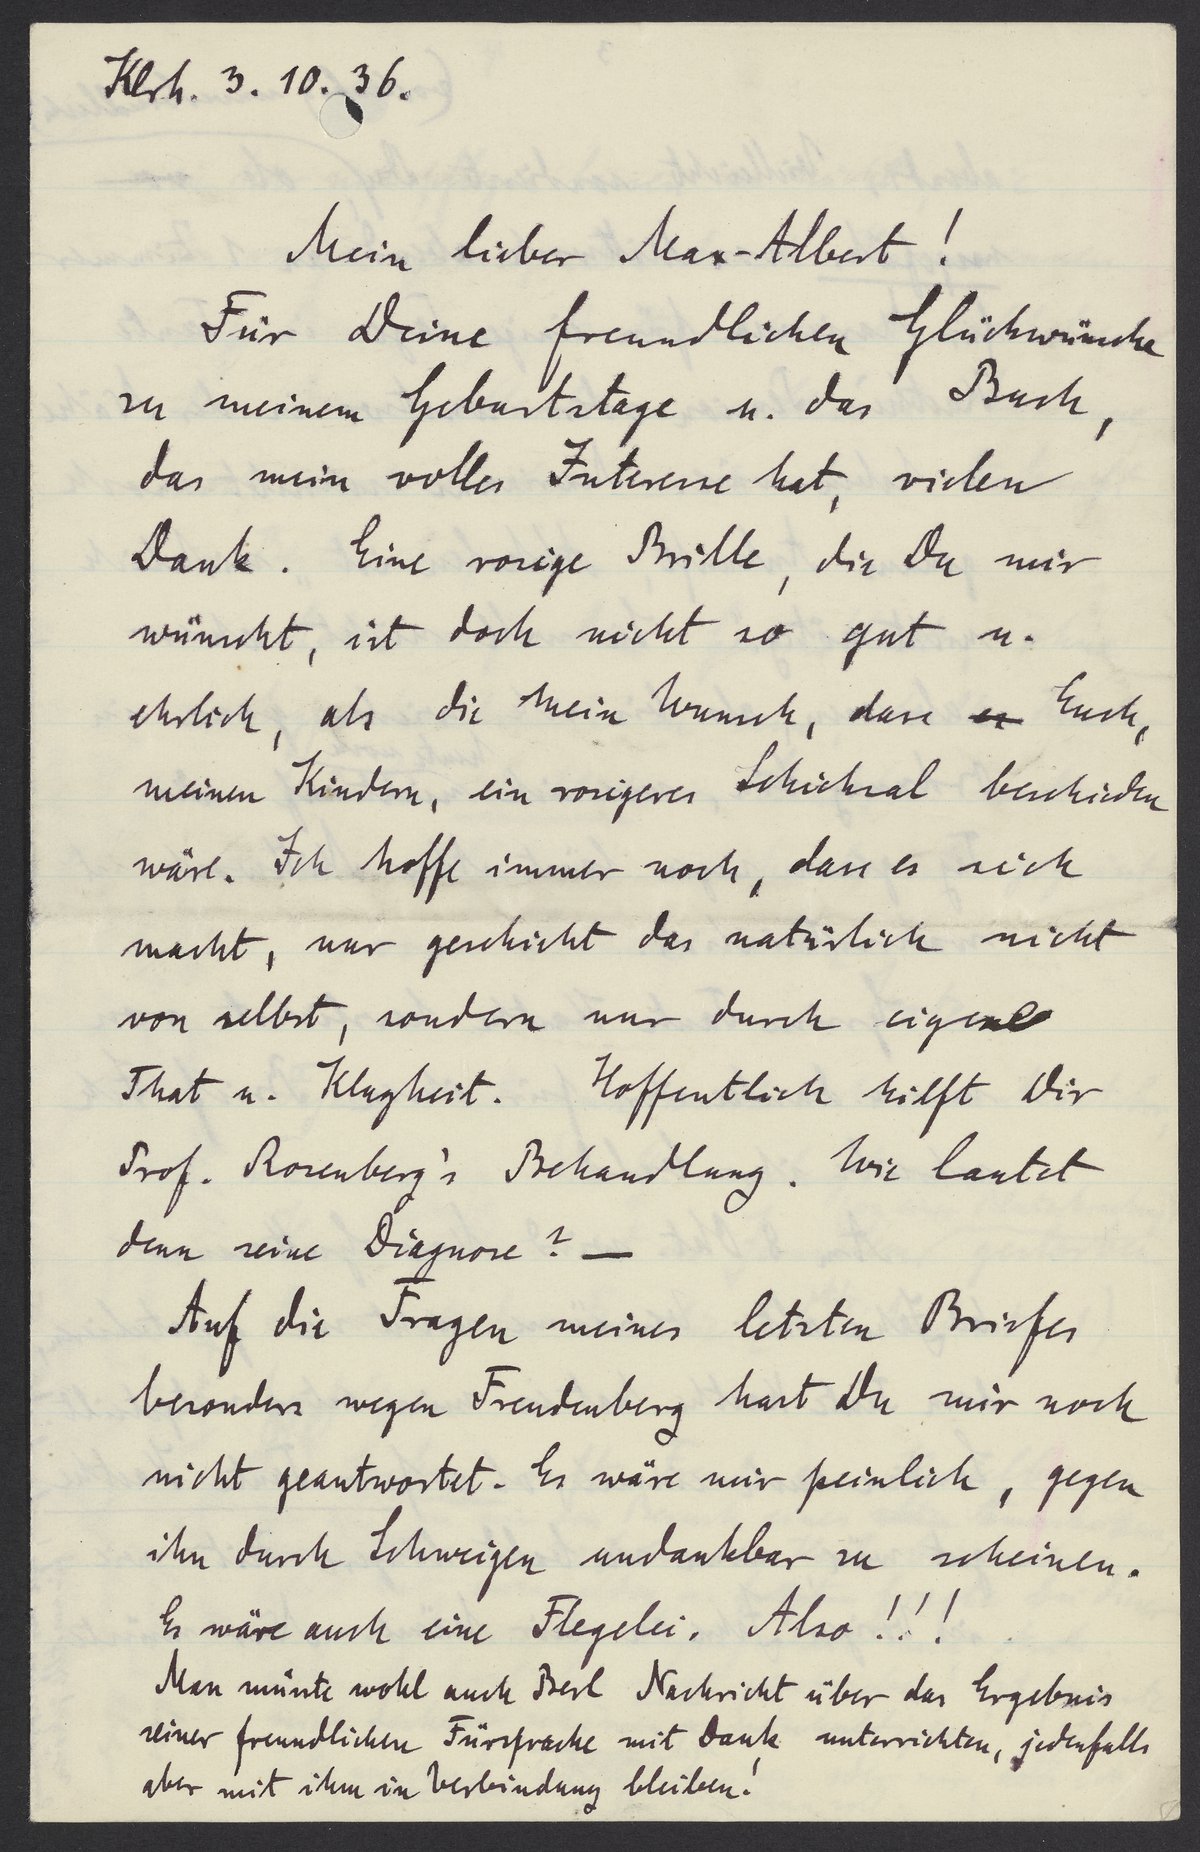 Klrh. 3. 10. 36.
Mein lieber Max-Albert!
Für Deine freundlichen Glückwünsche
zu meinem Geburtstage u. das Buch,
das mein volles Interesse hat, vielen
Dank. Eine rosige Brille, die Du mir
wünscht, ist doch nicht so gut u.
ehrlich, als die mein Wunsch, dass es Euch,
meinen Kindern, ein rosigeres Schicksal beschieden
wäre. Ich hoffe immer noch, dass es sich
macht, nur geschieht das natürlich nicht
von selbst, sondern nur durch eigene
That u. Klugheit. Hoffentlich hilft Dir
Prof. Rosenberg's Behandlung. Wie lautet
denn seine Diagnose? —
Auf die Fragen meines letzten Briefes
besonders wegen Freudenberg hast Du mir noch
nicht geantwortet. Es wäre mir peinlich, gegen
ihn durch Schweigen undankbar zu scheinen.
Es wäre auch eine Flegelei. Also!!!
Man müsste wohl auch Berl Nachricht über das Ergebnis
seiner freundlichen Fürsprache mit Dank unterrichten, jedenfalls
aber mit ihm in Verbindung bleiben!